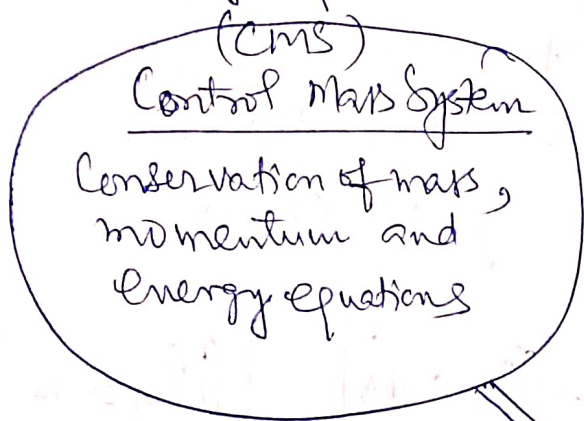 (CMS)
Control Mass System
Conservation of mass,
momentum and
energy equations